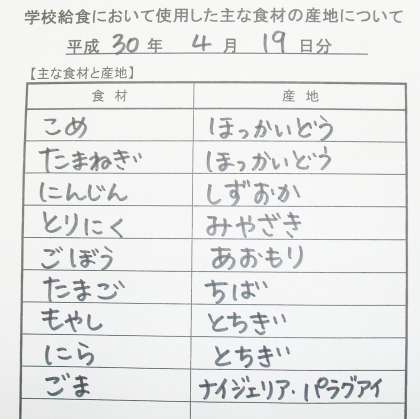 学校給食において使用した主な食材の産地について
平成 30 年 4 月 19 日分
【主な食材と産地】
食材 産地
こめ ほっかいどう
たまねぎ ほっかいどう
にんじん しずおか
とりにく みやざき
ごぼう あおもり
たまご ちば
もやし とちぎ
にら とちぎ
ごま ナイジェリア・パラグアイ